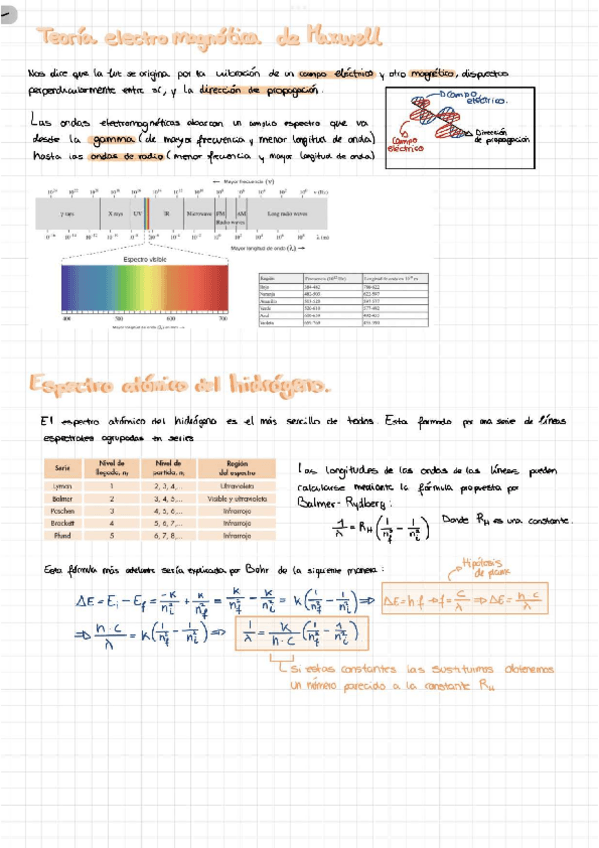 Teoría electromagnética de Maxwell
Nos dice que la luz se origina por la vibración de un campo eléctrico y otro magnético, dispuestos
perpendicularmente entre sí, y la dirección de propagación.
Campo
eléctrico.
Campo
eléctrico
Dirección
de propagación
Las ondas electromagnéticas abarcan un amplio espectro que va
desde la gamma (de mayor frecuencia y menor longitud de onda)
hasta las ondas de radio (menor frecuencia y mayor longitud de onda)
← Mayor frecuencia (ν)
γ rays X rays UV IR Microwave FM AM Long radio waves
Radio waves
Mayor longitud de onda (λ) →
Espectro visible
400 500 600 700
Región
Rojo
Naranja
Amarillo
Verde
Azul
Violeta
Espectro atómico del hidrógeno.
El espectro atómico del hidrógeno es el más sencillo de todos. Esta formado por una serie de líneas
espectrales agrupadas en series
Serie Nivel de llegada, nf Nivel de partida, ni Región del espectro
Lyman 1 2, 3, 4,... Ultravioleta
Balmer 2 3, 4, 5,... Visible y ultravioleta
Paschen 3 4, 5, 6,... Infrarrojo
Brackett 4 5, 6, 7,... Infrarrojo
Pfund 5 6, 7, 8,... Infrarrojo
Las longitudes de las ondas de las líneas pueden
calcularse mediante la fórmula propuesta por
Balmer-Rydberg:
1/λ = RH (1/nf² − 1/ni²) Donde RH es una constante.
Esta fórmula más adelante sería explicada por Bohr de la siguiente manera:
Hipótesis
de planck
ΔE = Ei − Ef = −K/ni² + K/nf² = K/nf² − K/ni² = K(1/nf² − 1/ni²) ⇒ ΔE = h f → f = c/λ ⇒ ΔE = h·c/λ
⇒ h·c/λ = K(1/nf² − 1/ni²) ⇒ 1/λ = K/h·c (1/nf² − 1/ni²)
Si estas constantes las sustituimos obtenemos
un número parecido a la constante RH